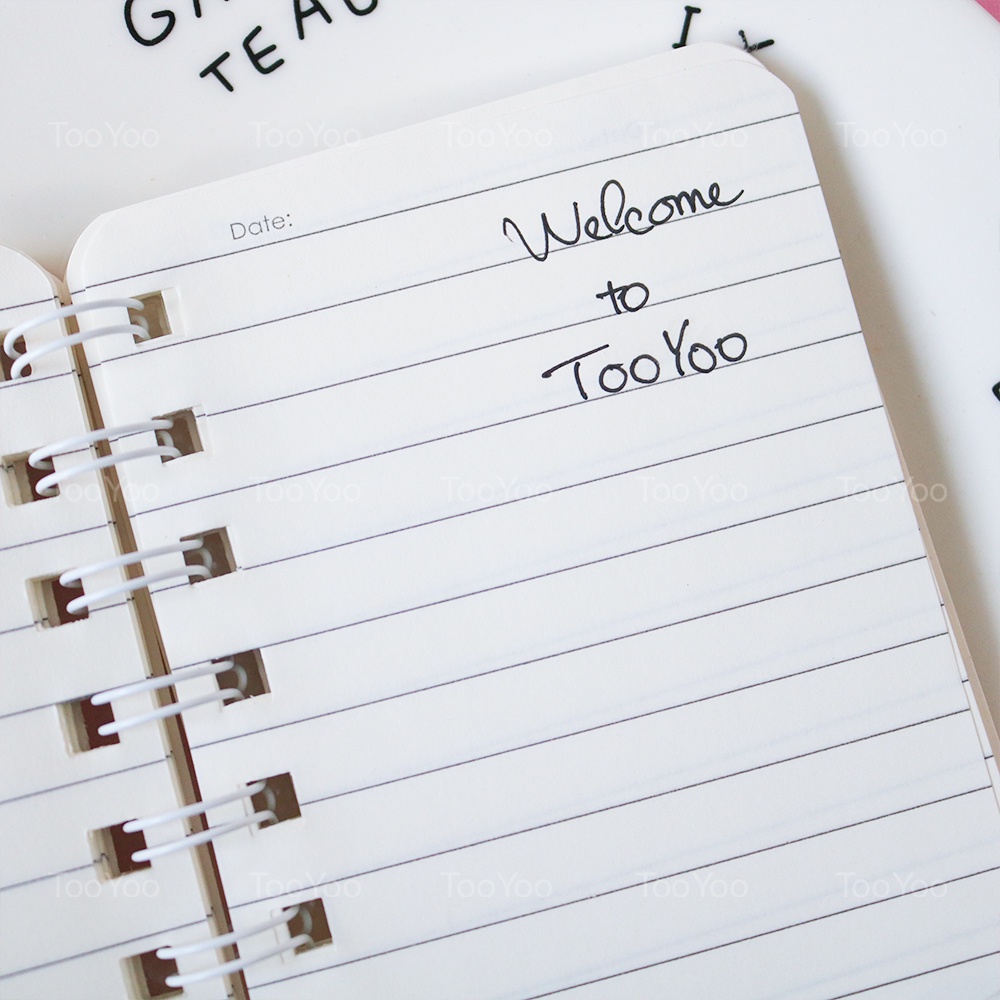 Date:
Welcome
to
TooYoo
TooYoo TooYoo TooYoo TooYoo TooYoo
TooYoo TooYoo TooYoo TooYoo TooYoo
TooYoo TooYoo TooYoo TooYoo TooYoo